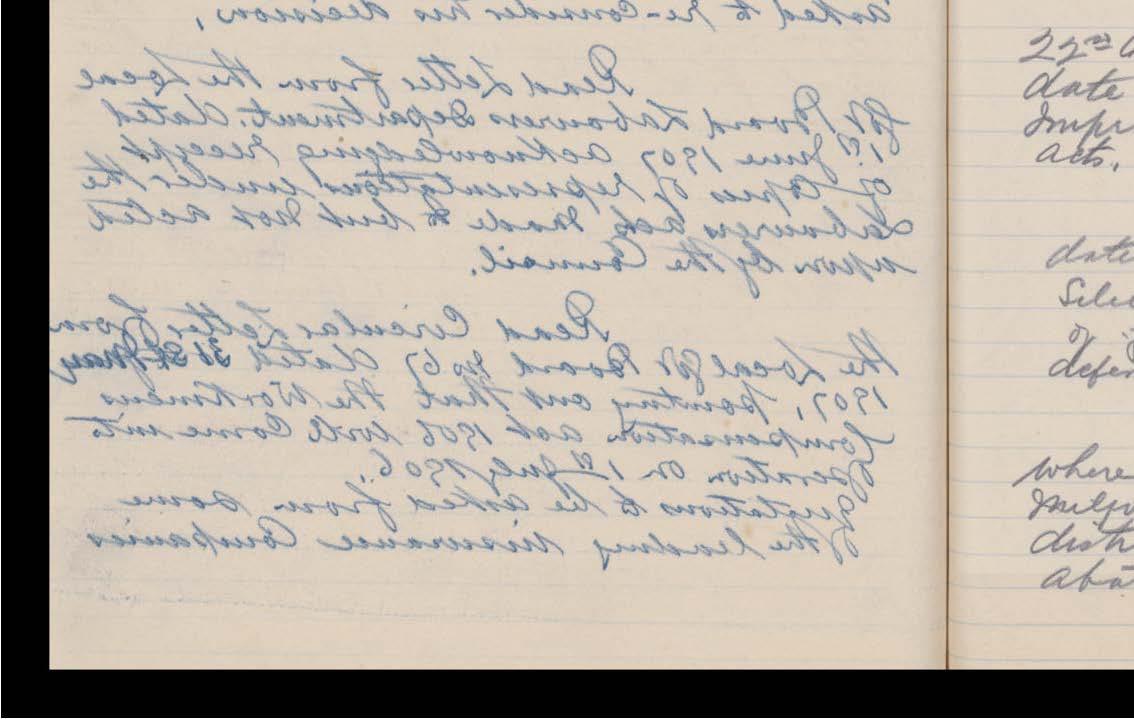 asked to re-consider his decision,
Read Letter from the Local
Govt Board Labourers Department. dated
1st June 1907 acknowledging receipt
of Copies of representations under the
Labourers Act made to but not acted
upon by the Council.
Read Circular Letter from
the Local Govt Board No 67 dated 31st May
1907, pointing out that the Workmens
Compensation Act 1906 will Come into
Operation on 1st July 1906.
Quotations to be asked from some
of the leading insurance Companies
22nd
date
Impr
Acts,
date
Sele
of
defen
where
Milfo
distr
aba